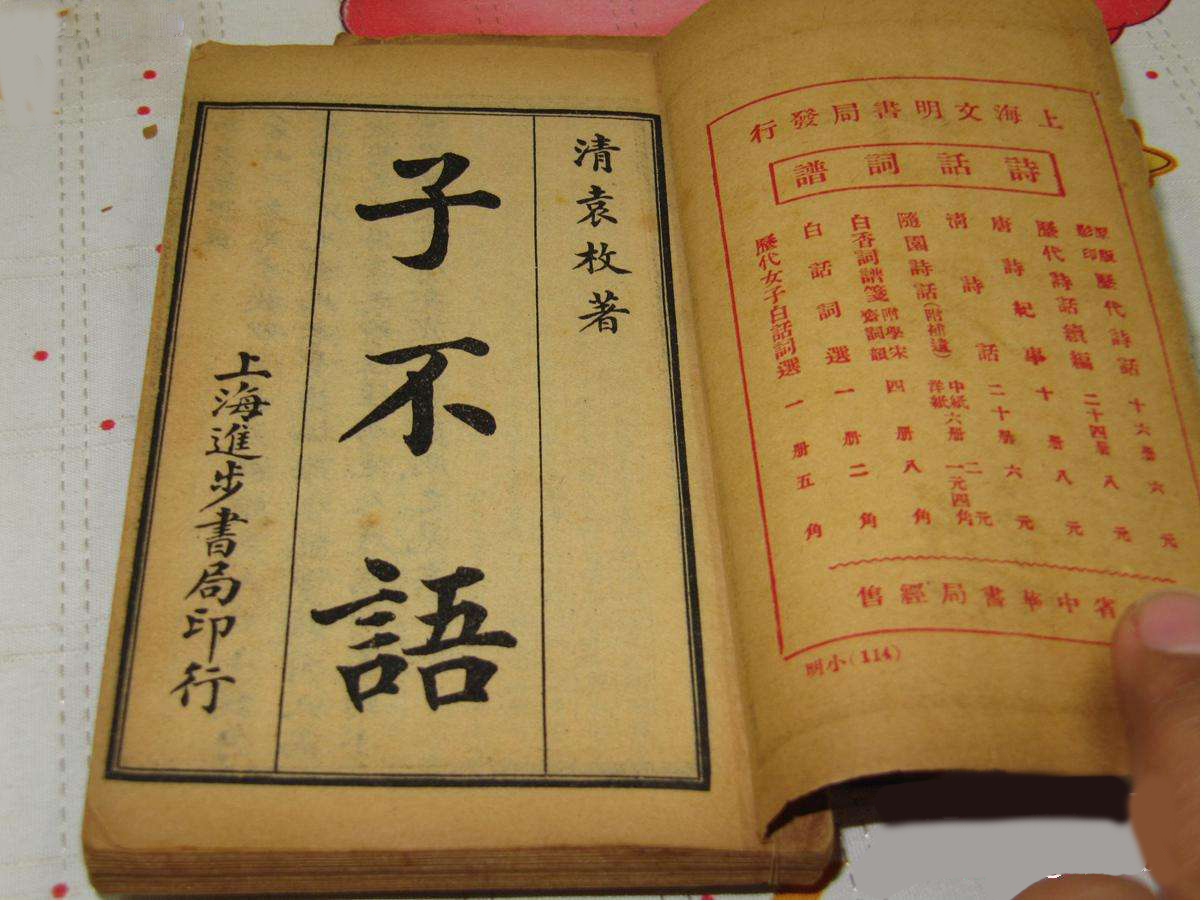 清袁枚著
子不語
上海進步書局印行
上海文明書局發行
詩話詞譜
原版影印歷代詩話 十六册 六元
歷代詩話續編 二十四册 八元
唐詩紀事 十册 八元
清詩話 二十册 六元
隨園詩話(附補遺) 中紙六册 二元 洋紙 一元四角
白香詞譜箋 附學宋齋詞韻 四册 八角
白話詞選 一册 二角
歷代女子白話詞選 一册 五角
省中華書局經售
明小(114)